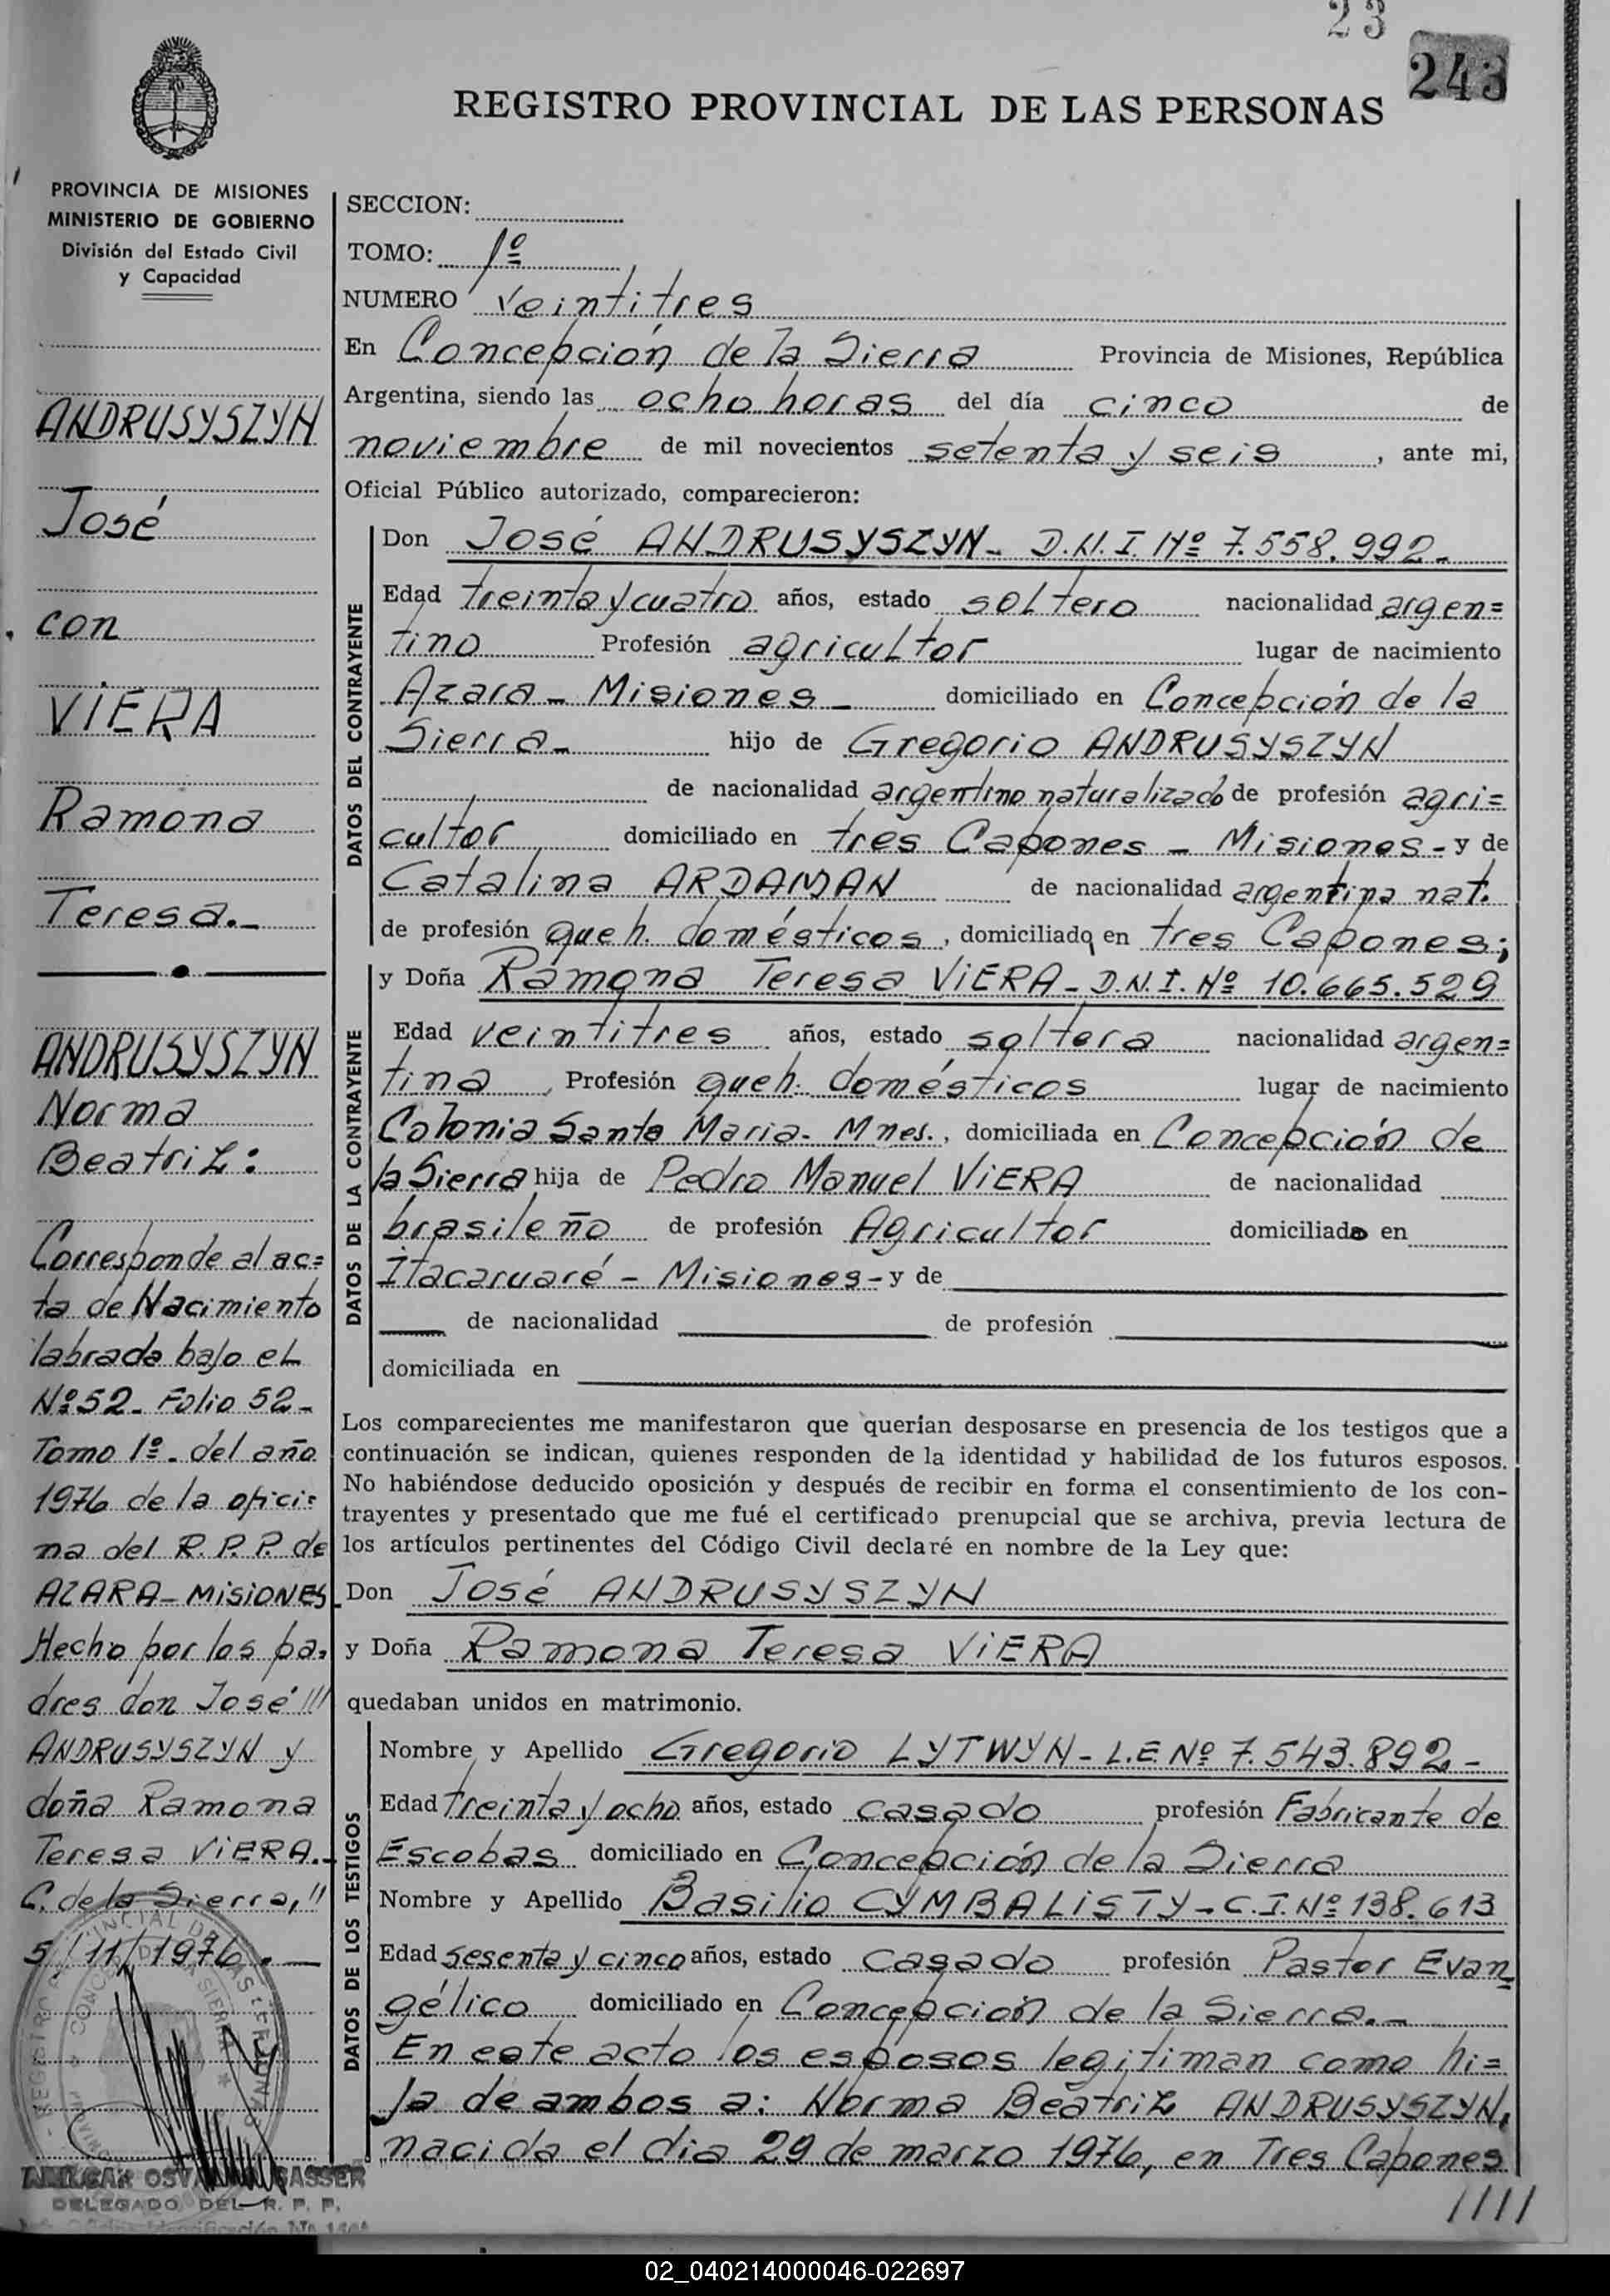 23
243
REGISTRO PROVINCIAL DE LAS PERSONAS
PROVINCIA DE MISIONES
MINISTERIO DE GOBIERNO
División del Estado Civil
y Capacidad
ANDRUSYSZYN
José
con
VIERA
Ramona
Teresa.-
ANDRUSYSZYN
Norma
Beatriz:
Corresponde al ac=
ta de Nacimiento
labrada bajo el
Nº 52- Folio 52-
Tomo 1º- del año
1976 de la ofici=
na del R.P.P. de
AZARA-MISIONES
Hecho por los pa=
dres don José
ANDRUSYSZYN y
doña Ramona
Teresa VIERA.-
C. de la Sierra,
5/11/1976.-
DELEGADO DEL R. P. P.
SECCION:
TOMO: 1º
NUMERO veintitres
En Concepción de la Sierra Provincia de Misiones, República
Argentina, siendo las ocho horas del día cinco de
noviembre de mil novecientos setenta y seis, ante mi,
Oficial Público autorizado, comparecieron:
DATOS DEL CONTRAYENTE
Don José ANDRUSYSZYN- D.N.I. Nº 7.558.992-
Edad treinta y cuatro años, estado soltero nacionalidad argen=
tino Profesión agricultor lugar de nacimiento
Azara- Misiones- domiciliado en Concepción de la
Sierra- hijo de Gregorio ANDRUSYSZYN
de nacionalidad argentino naturalizado de profesión agri=
cultor domiciliado en tres Capones - Misiones- y de
Catalina ARDAMAN de nacionalidad argentina nat.
de profesión queh. domésticos, domiciliada en tres Capones;
DATOS DE LA CONTRAYENTE
y Doña Ramona Teresa VIERA- D.N.I. Nº 10.665.529
Edad veintitres años, estado soltera nacionalidad argen=
tina, Profesión queh. domésticos lugar de nacimiento
Colonia Santa Maria- Mnes., domiciliada en Concepción de
la Sierra hija de Pedro Manuel VIERA de nacionalidad
brasileño de profesión Agricultor domiciliado en
Itacaruaré - Misiones- y de
de nacionalidad de profesión
domiciliada en
Los comparecientes me manifestaron que querían desposarse en presencia de los testigos que a
continuación se indican, quienes responden de la identidad y habilidad de los futuros esposos.
No habiéndose deducido oposición y después de recibir en forma el consentimiento de los con-
trayentes y presentado que me fué el certificado prenupcial que se archiva, previa lectura de
los artículos pertinentes del Código Civil declaré en nombre de la Ley que:
Don José ANDRUSYSZYN
y Doña Ramona Teresa VIERA
quedaban unidos en matrimonio.
DATOS DE LOS TESTIGOS
Nombre y Apellido Gregorio LYTWYN- L.E. Nº 7.543.892-
Edad treinta y ocho años, estado casado profesión Fabricante de
Escobas domiciliado en Concepción de la Sierra
Nombre y Apellido Basilio CYMBALISTY- C.I. Nº 138.613
Edad sesenta y cinco años, estado casado profesión Pastor Evan=
gélico domiciliado en Concepción de la Sierra.-
En este acto los esposos legitiman como hi=
ja de ambos a: Norma Beatriz ANDRUSYSZYN,
nacida el dia 29 de marzo 1976, en Tres Capones
////
02_040214000046-022697